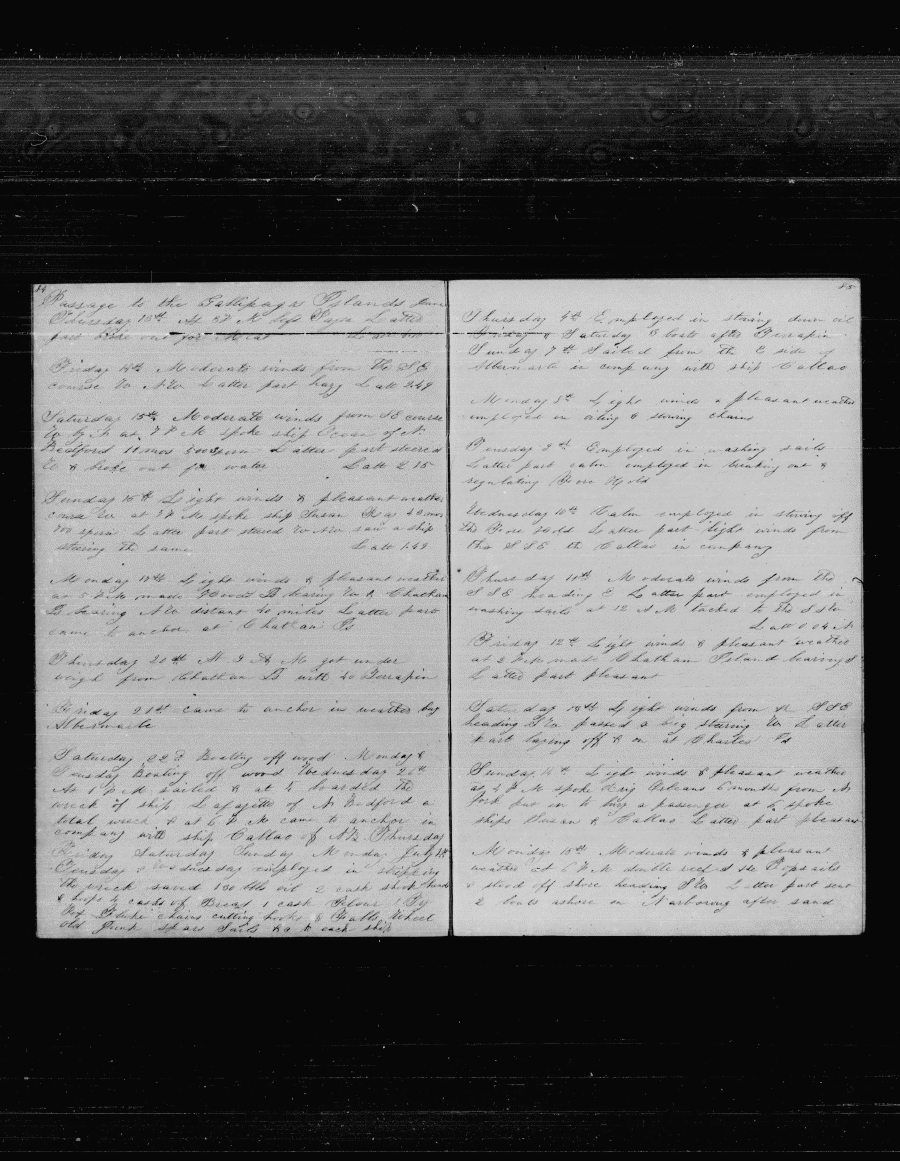 84
Passage to the Gallipagas Islands June
Thursday 13th At 5 P M left Papa Latter
part broke out for Meat Latt
Friday 14th Moderate winds from the SE
course W N W Latter part hazy Latt 2.49
Saturday 15th Moderate winds from SE course
W by N at 7 P M spoke ship Ocean of N
Bedford 11 mos 500 sperm Latter part steered
W & broke out for water Latt 2 15
Sunday 16th Light winds & pleasant weather
course W at 3 P M spoke ship Susan 42 mos
700 sperm Latter part steered W N W saw a ship
steering the same Latt 1.49
Monday 17th Light winds & pleasant weather
at 5 P M made Hoods Is bearing W & Chatham
Is bearing N W distant 40 miles Latter part
came to anchor at Chatham Is
Thursday 20th At 9 A M got under
weigh from Chatham Is with 40 Terrapin
Friday 21st came to anchor in weather bay
Albermarle
Saturday 22d Boating off wood Monday &
Tuesday Boating off wood Wednesday 26th
At 1 P M sailed & at 4 boarded the
wreck of ship Lafayette of N Bedford a
total wreck & at 6 P M came to anchor in
company with ship Callao of N B Thursday
Friday Saturday Sunday Monday July 1st
Tuesday & Wednesday employed in stripping
the wreck saved 150 bbls oil 2 cask
& hoops 4 casks of Bread 1 cask Flour 1
Fluke chains cutting hooks & Falls Wheel
old Junk spars Sails &c to each ship
85
Thursday 4th Employed in stowing down oil
Friday & Saturday 5 boats after Terrapin
Sunday 7th Sailed from the E side of
Albermarle in company with ship Callao
Monday 8th Light winds & pleasant weather
employed in oiling & stowing chains
Tuesday 9th Employed in washing sails
Latter part calm employed in breaking out &
regulating Fore Hold
Wednesday 10th Calm employed in stowing off
the Fore Hold Latter part light winds from
the S S E the Callao in company
Thursday 11th Moderate winds from the
S S E heading E Latter part employed in
washing sails at 12 A M tacked to the S S W
Latt 0 04 N
Friday 12th Light winds & pleasant weather
at 2 P M made Chatham Island bearing S
Latter part pleasant
Saturday 13th Light winds from the S S E
heading S W passed a brig steering W Latter
part laying off & on at Charles Is
Sunday 14th Light winds & pleasant weather
at 4 P M spoke Brig Orleans 6 months from N
York put in to buy a passenger at 6 spoke
ships Susan & Callao Latter part pleasant
Monday 15th Moderate winds & pleasant
weather at 6 P M double reefd the Topsails
& stood off shore heading S W Latter part sent
2 boats ashore on Narborong after sand